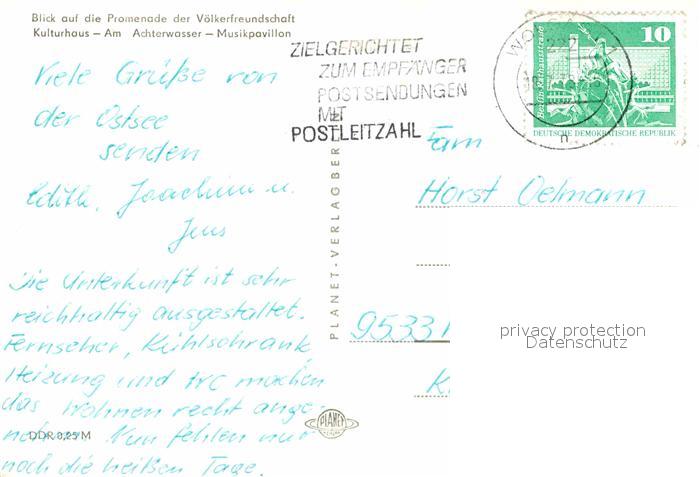 Blick auf die Promenade der Völkerfreundschaft
Kulturhaus – Am Achterwasser – Musikpavillon
ZIELGERICHTET
ZUM EMPFÄNGER
POSTSENDUNGEN
MIT
POSTLEITZAHL
10
Berlin, Rathausstraße
DEUTSCHE DEMOKRATISCHE REPUBLIK
Viele Grüße von
der Ostsee
senden
Edith, Joachim u.
Jens
Die Unterkunft ist sehr
reichhaltig ausgestaltet.
Fernseher, Kühlschrank
Heizung und WC machen
das Wohnen recht ange-
nehm. Nun fehlen nur
noch die heißen Tage.
DDR 0,25 M
PLANET-VERLAG BER
PLANET
Fam
Horst Oelmann
9533
K
privacy protection
Datenschutz